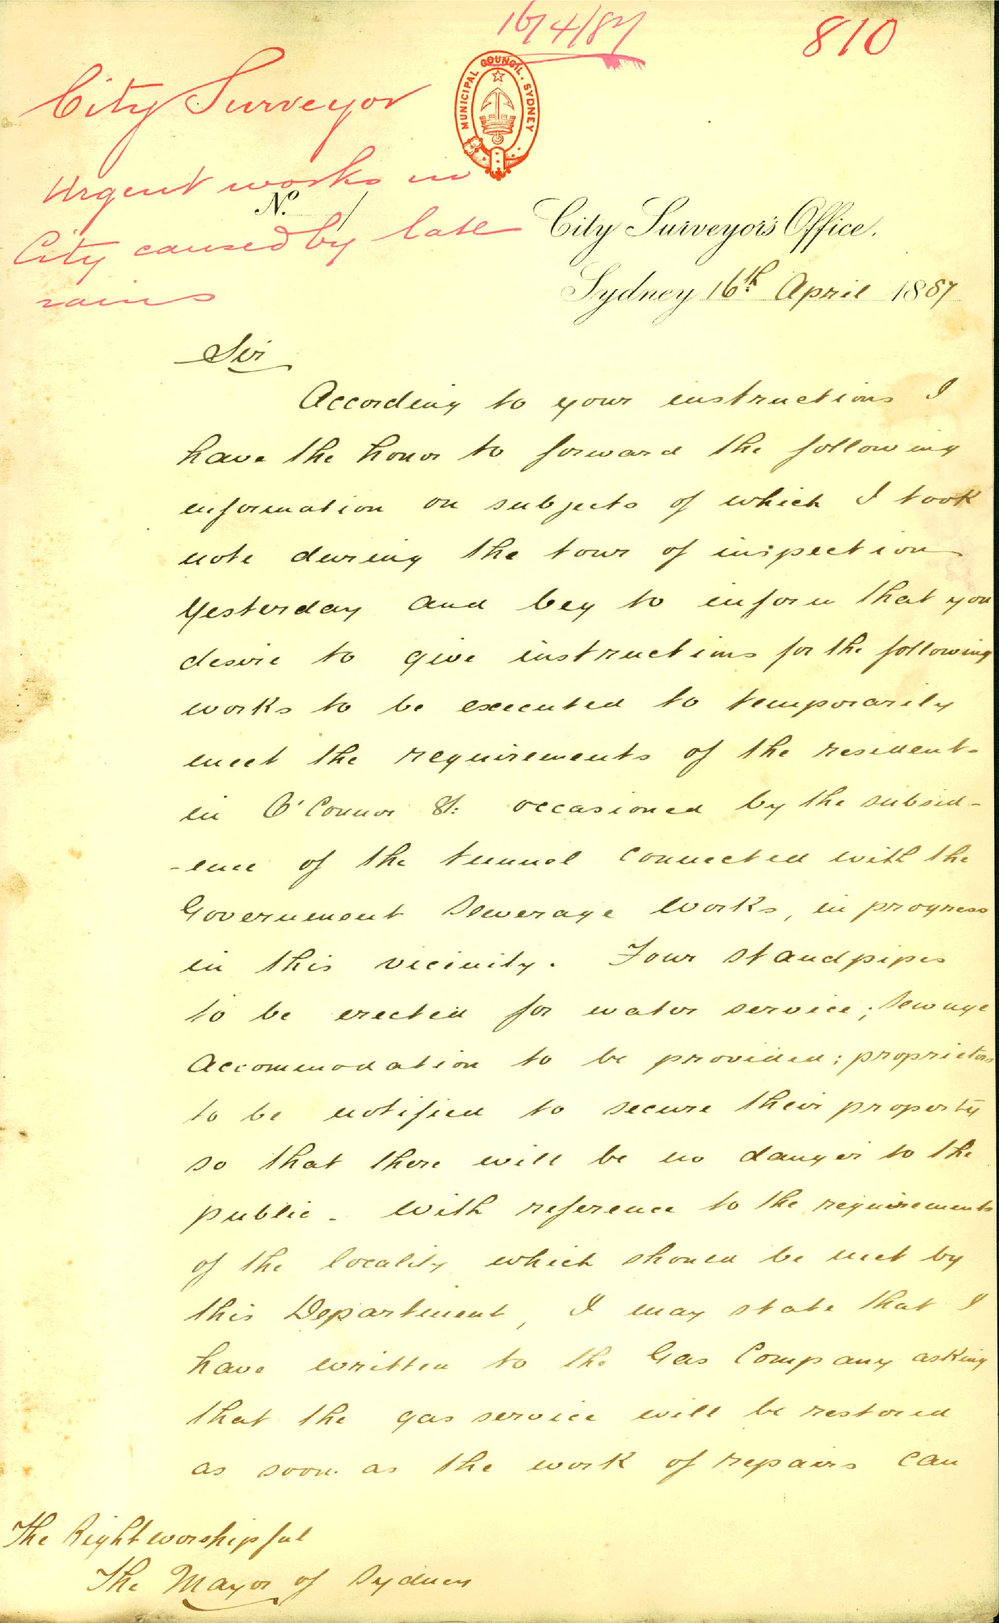 16/4/87
810
City Surveyor
Urgent works in
City caused by late
rains
MUNICIPAL COUNCIL. SYDNEY
No. 1
City Surveyor's Office.
Sydney 16th April 1887
Sir
According to your instructions I
have the honor to forward the following
information on subjects of which I took
note during the tour of inspection
Yesterday and beg to inform that you
desire to give instructions for the following
works to be executed to temporarily
meet the requirements of the residents
in O'Connor St: occasioned by the subsid-
-ence of the tunnel connected with the
Government Sewerage Works, in progress
in this vicinity. Four standpipes
to be erected for water service; sewage
accommodation to be provided; proprietors
to be notified to secure their property
so that there will be no danger to the
public - With reference to the requirements
of the locality which should be met by
this Department, I may state that I
have written to the Gas Company asking
that the gas service will be restored
as soon as the work of repairs can
The Right worshipful
The Mayor of Sydney